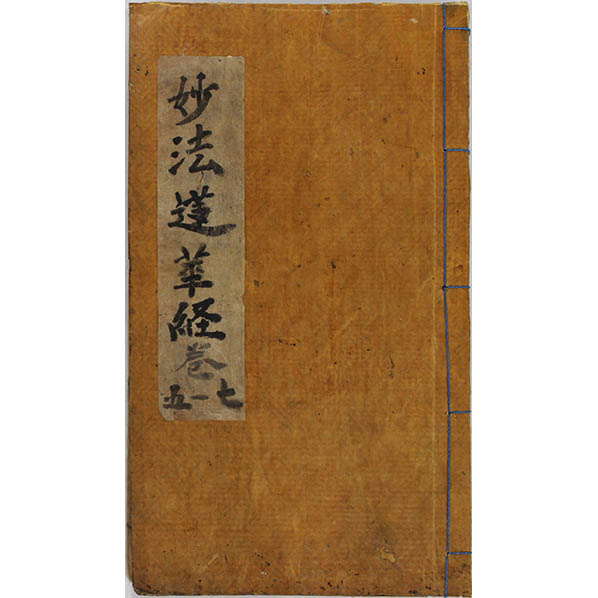 妙法蓮華経巻
五一七